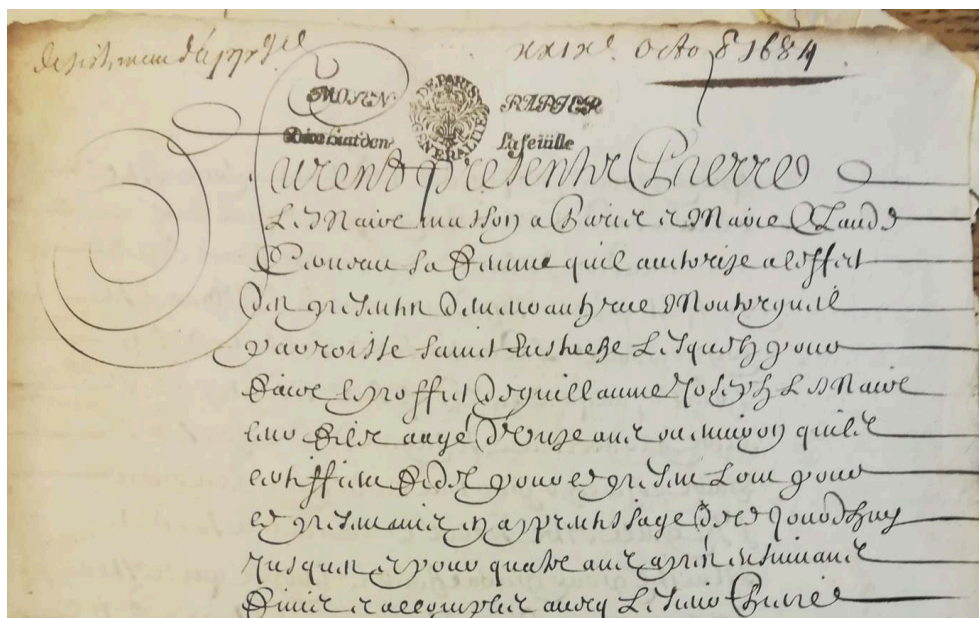 xxixe. octo 1684
MOYEN PAPIER
GENERALITE DE PARIS
Dixhuit den. la feüille
furent presents Pierre
Le Maire masson a Paris et Marie Claude
sa femme quil authorise a leffect
des presentes demeurants rue Montorgueil
parroisse saint Eustache Lesquels pour
faire le proffit de guillaume Joseph Le Maire
leur fils aagé d'onze ans ou environ quils
certiffient fidel pour ce lont pour
ce en apprentissage de ce jourdhuy
jusques et pour quatre ans apres ensuivans
finis et accomplis avecq le sieur